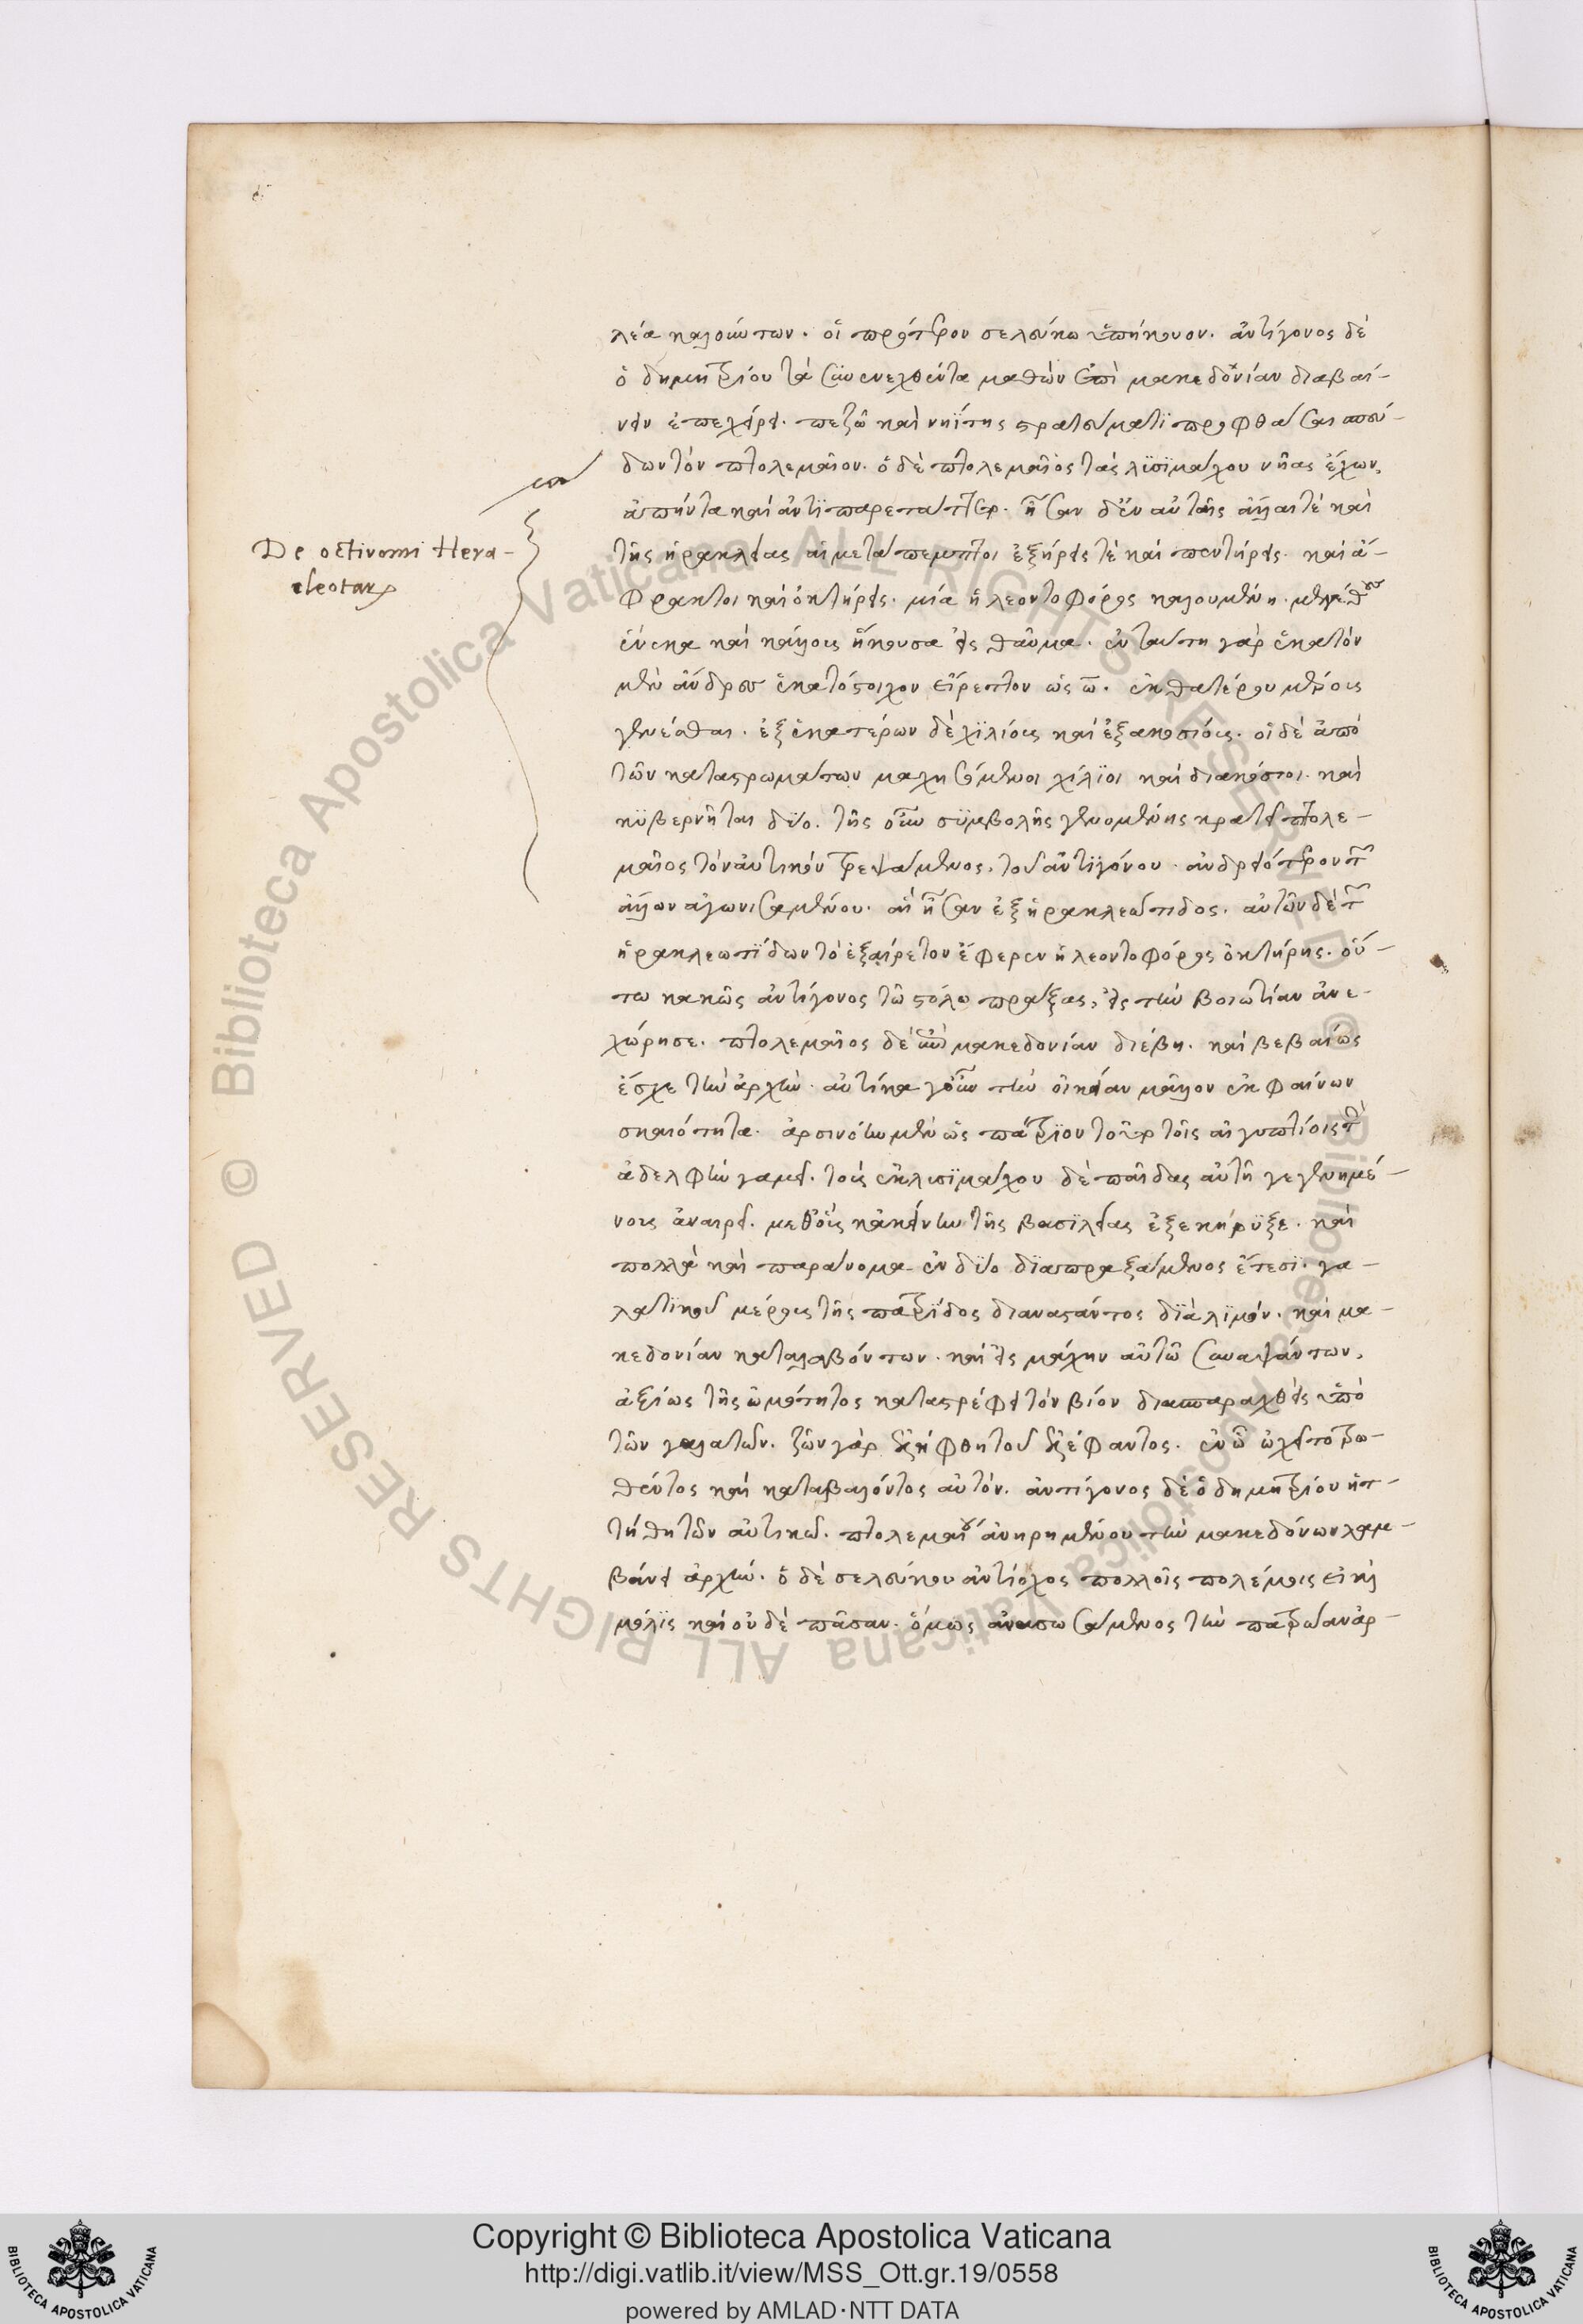 λέα καλούντων. οἳ πρότερον σελεύκω ὑπήκουον. ἀντίγονος δὲ
ὁ δημητρίου τὰ συνενεχθέντα μαθὼν ἐπὶ μακεδονίαν διαβαί-
νειν ἐπεχείρει. πεζῶ καὶ νηΐτης στρατεύματι προφθάσαι σπεύ-
δων τὸν πτολεμαῖον. ὁ δὲ πτολεμαῖος τὰς λϋσϊμάχου νῆας ἔχων,
ἀπήντα καὶ ἀντιπαρετάττετο. ἦσαν δ' ἐν αὐταῖς ἄλλαι τὲ καὶ
De octiremi Hera-
cleotar
τῆς ἡρακλείας αἱ μετάπεμπτοι ἑξήρεις τὲ καὶ πεντήρεις. καὶ ἄ-
φρακτοι καὶ ὀκτήρεις. μία ἡ λεοντοφόρος καλουμένη. μεγέθους
ἕνεκα καὶ κάλλους ἥκουσα εἰς θαῦμα. ἐν ταύτη γὰρ ἑκατὸν
μὲν ἄνδρες ἑκατόστοιχον εἴρεττον ὡς ω. ἐκ θατέρου μέρους
γενέσθαι. ἐξ ἑκατέρων δὲ χϊλίους καὶ ἑξακοσίους. οἱ δὲ ἀπὸ
τῶν καταστρωμάτων μαχησόμενοι χίλϊοι καὶ διακόσιοι. καὶ
κϋβερνῆται δύο. τῆς οὖν συμβολῆς γενομένης κρατεῖ πτολε-
μαῖος τὸ ναυτικὸν τρεψάμενος, τοῦ ἀντϊγόνου. ἀνδρειότερον τῶν
ἄλλων ἀγωνισαμένου. αἳ ἦσαν ἐξ ἡρακλεώτιδος. αὐτῶν δὲ τῶν
ἡρακλεωτϊδων τὸ ἐξαίρετον ἔφερεν ἡ λεοντοφόρος ὀκτήρης. οὕ-
τω κακῶς ἀντίγονος τῶ στόλω πράξας, εἰς τὴν βοιωτίαν ἀνε-
χώρησε. πτολεμαῖος δὲ ἐπὶ μακεδονίαν διέβη. καὶ βεβαίως
ἔσχε τὴν ἀρχὴν. αὐτίκα γοῦν τὴν οἰκείαν μᾶλλον ἐκφαίνων
σκαιότητα. ἀρσινόην μὲν ὡς πάτρϊον τοῦτο τοῖς αἰγυπτίοις τὴν
ἀδελφὴν γαμεῖ. τοὺς ἐκ λϋσϊμάχου δὲ παῖδας αὐτῆ γεγενημέ-
νους ἀναιρεῖ. μεθ' οὓς κἀκείνην τῆς βασϊλείας ἐξεκήρϋξε. καὶ
πολλὰ καὶ παράνομα ἐν δύο δϊαπραξάμενος ἔτεσϊ. γα-
λατϊκοῦ μέρους τῆς πατρίδος διαναστάντος δϊὰ λϊμὸν. καὶ μα-
κεδονίαν καταλαβόντων. καὶ εἰς μάχην αὐτῶ συναψάντων,
ἀξίως τῆς ὠμότητος καταστρέφει τὸν βίον διασπαραχθεὶς ὑπὸ
τῶν γαλατῶν. ζῶν γὰρ ἐλήφθη τοῦ ἐλέφαντος. ἐν ὧ ὠχεῖτο τρω-
θέντος καὶ καταβαλόντος αὐτόν. ἀντίγονος δὲ ὁ δημητρίου ἡτ-
τήθη τῶν αὐτικῶν. πτολεμαίου ἀνηρημένου τὴν μακεδόνων λαμ-
βάνει ἀρχήν. ὁ δὲ σελεύκου ἀντίοχος πολλοῖς πολέμοις εἰ καὶ
μόλϊς καὶ οὐδὲ πᾶσαν. ὅμως ἀνασωσάμενος τὴν πατρώαν ἀρ-
Copyright © Biblioteca Apostolica Vaticana
http://digi.vatlib.it/view/MSS_Ott.gr.19/0558
powered by AMLAD·NTT DATA